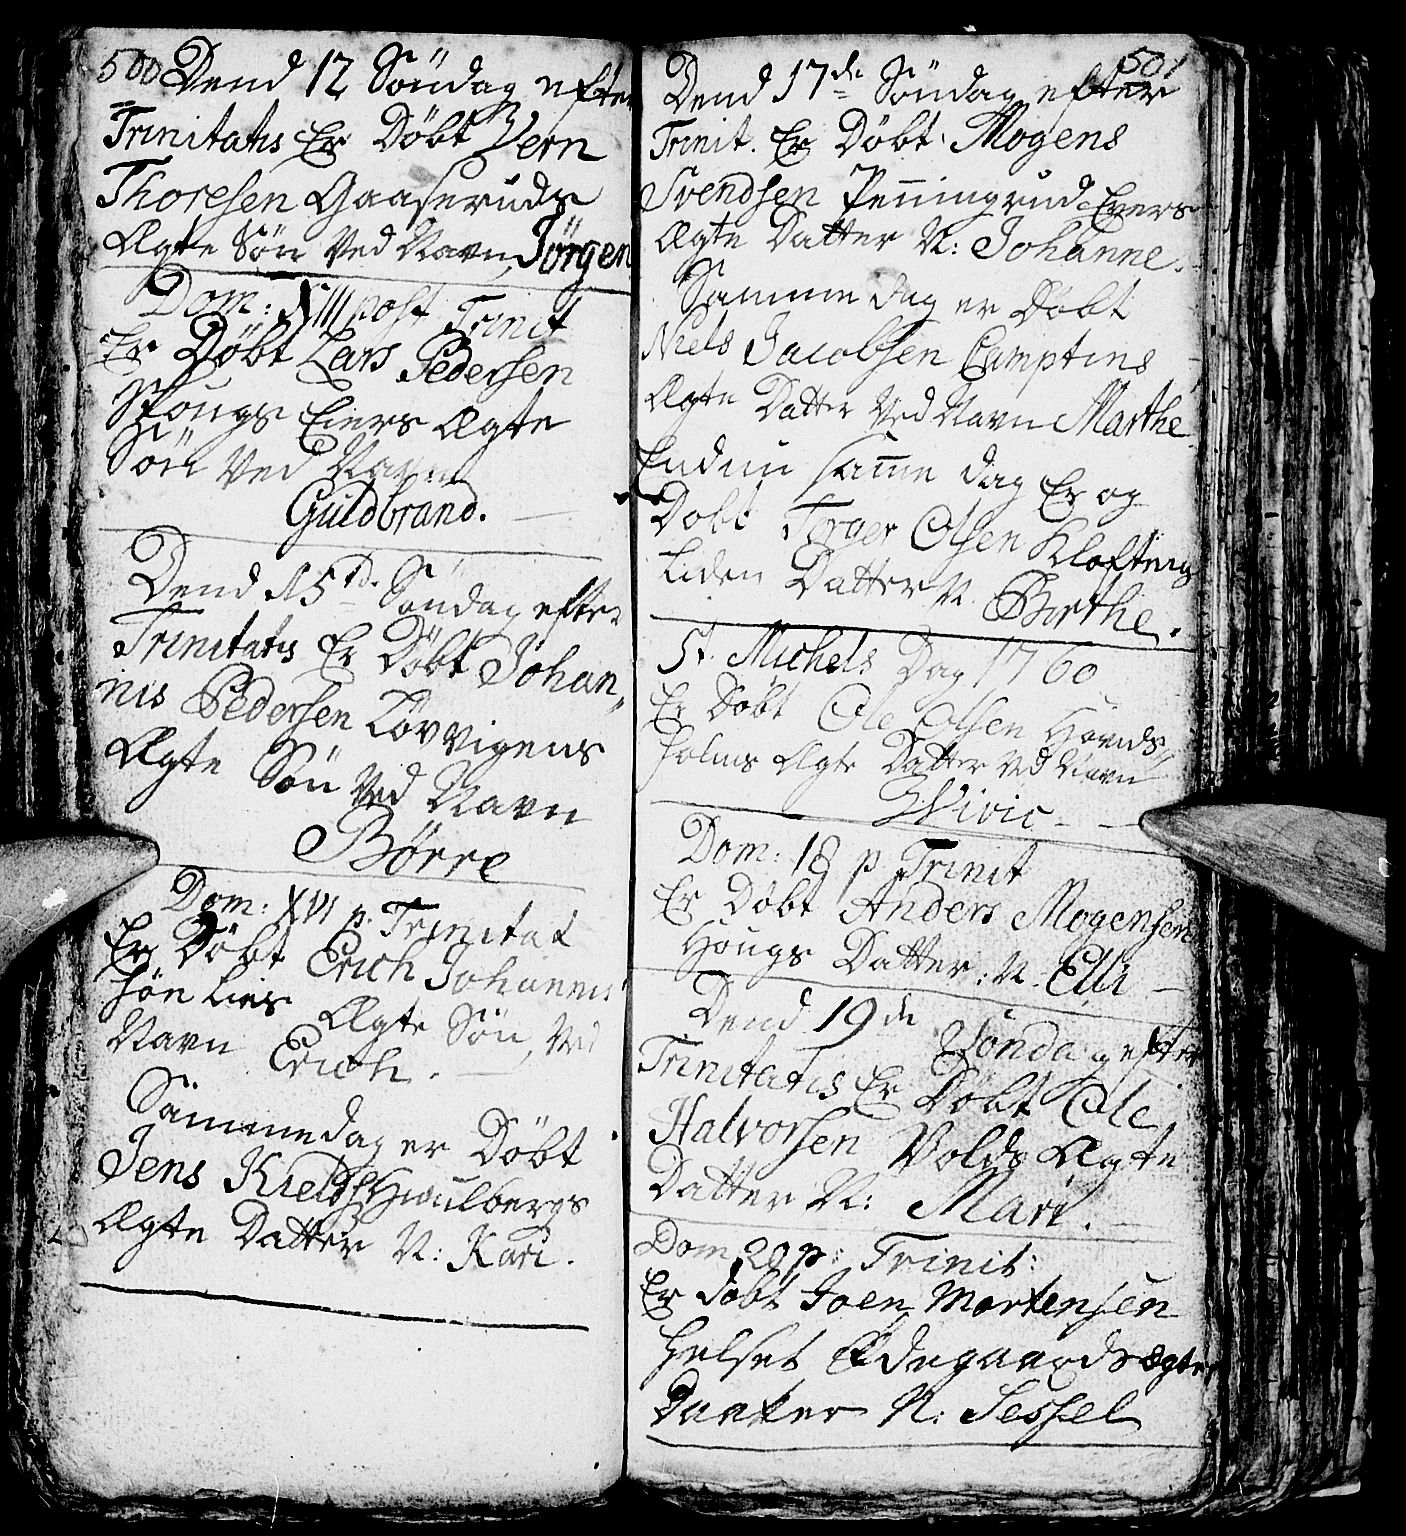 500 Dend 12 Söndag efter
Trinitatis Er Döbt Vern
Thoresen Gaaseruds
Ægte Sön Ved Navn Jörgen
Dom: XIII post Trinit
Er Döbt Lars Pedersen
Skougs Eiers Ægte
Sön Ved Navn
Guldbrand.
Dend 15de Söndag efter
Trinitatis Er Döbt Johan„
nis Pedersen Lövvigens
Ægte Sön Ved Navn
Börre
Dom: XVI p. Trinitat
Er Döbt Erich Johannis
sön Lies Ægte Sön, Ved
Navn Erich.
Samme dag er Döbt
Jens Kield
Ægte Datter N: Kari.
501
Dend 17de Söndag efter
Trinit. Er Döbt Mogens
Svendsen Peñingrud Eiers
Ægte Datter N: Johanne.
Samme dag er Döbt
Niels Jacobsen
Ægte Datter Ved Navn Marthe
Endnu same dag Er og
Döbt Torger Olsen Klöfting
Liden Datter N. Birthe.
St. Michels Dag 1760
Er Döbt Ole Olsen
holms Ægte Datter Ved Navn
Wivic
Dom: 18 p Trinit
Er Döbt Anders Mogensen
Hougs Datter: N. Elli
Dend 19de Söndag efter
Trinitatis Er Döbt Ole
Halvorsen Volds Ægte
Datter N: Mari.
Dom 20 p: Trinit:
Er döbt Joen Mortensen
Helset Ödegaards ægte
Daatter N: Sessel